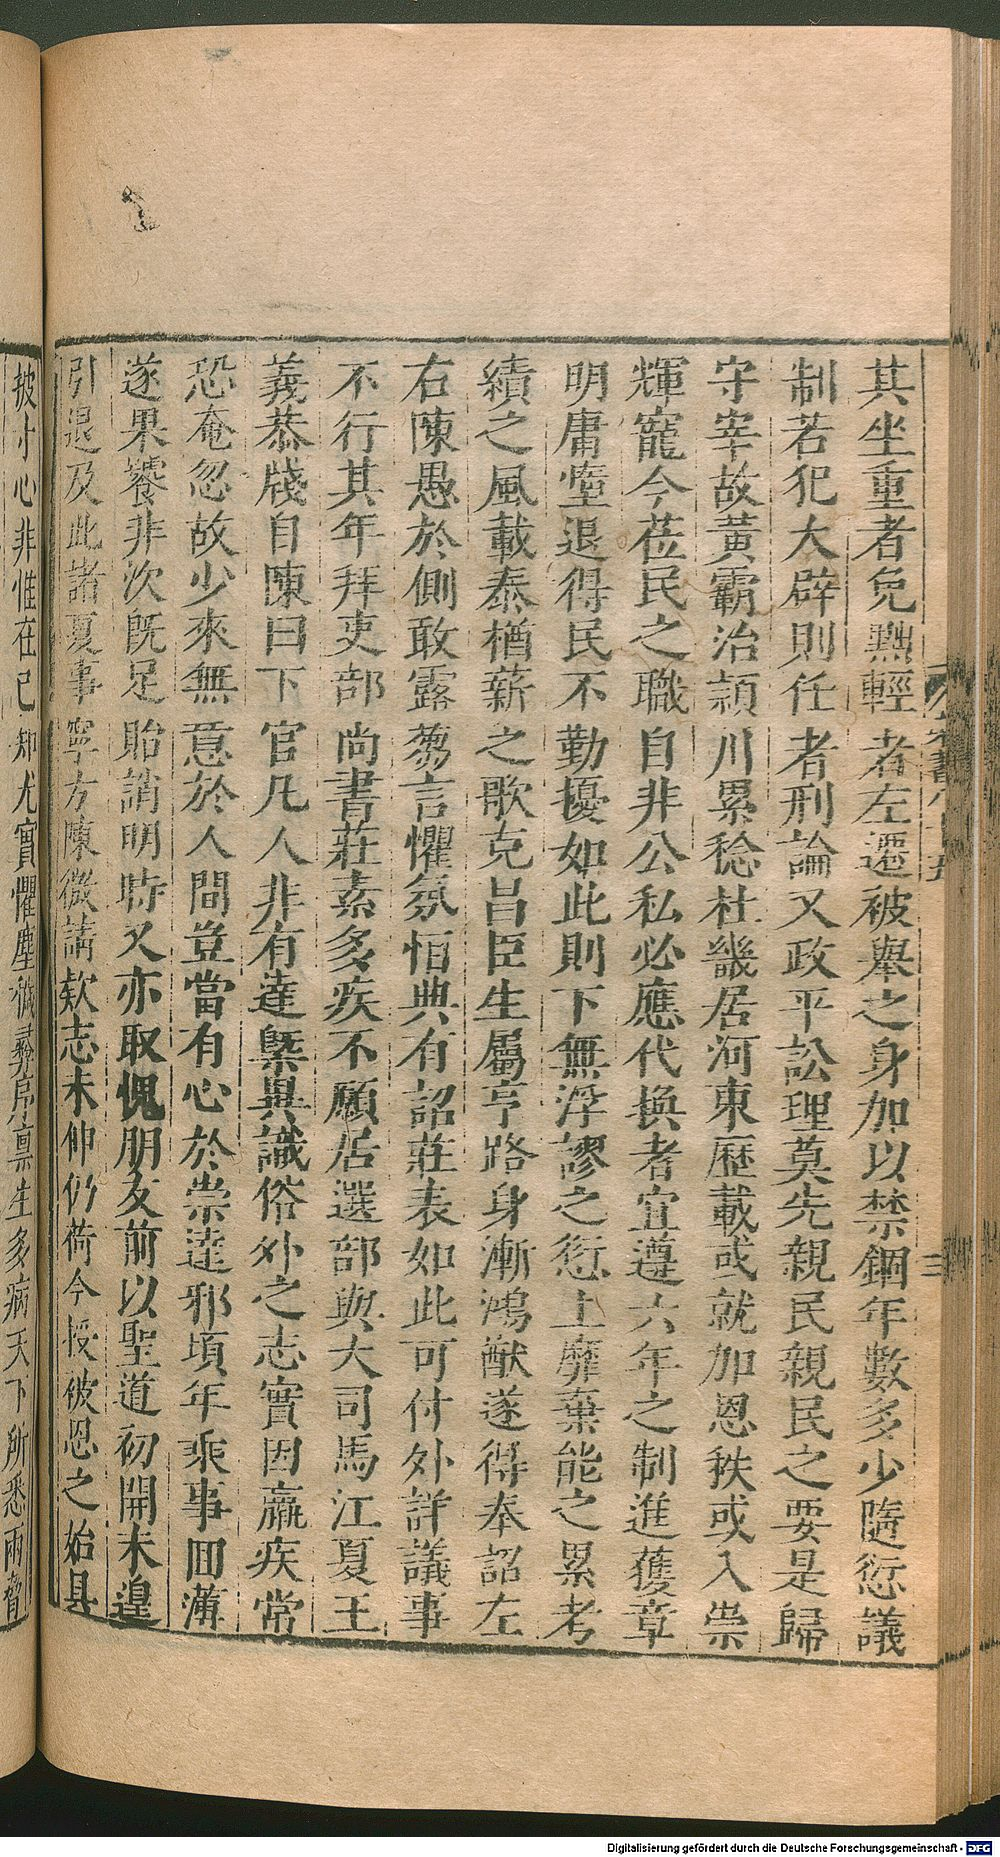 其坐重者免黜輕者左遷被舉之身加以禁錮年數多少隨愆議
制若犯大辟則任者刑論又政平訟理莫先親民親民之要是歸
守宰故黃霸治潁川累稔杜畿居河東歷載或就加恩秩或入崇
輝寵今莅民之職自非公私必應代換者宜遵六年之制進獲章
明庸墮退得民不勤擾如此則下無浮謬之愆上靡棄能之累考
績之風載泰楢薪之歌克昌臣生屬亨路身漸鴻猷遂得奉詔左
右陳愚於側敢露芻言懼氛恒典有詔莊表如此可付外詳議事
不行其年拜吏部尚書莊素多疾不願居選部與大司馬江夏王
義恭牋自陳曰下官凡人非有達槩異識俗外之志實因羸疾常
恐奄忽故少來無意於人間豈當有心於崇達邪頃年乘事回薄
遂果饕非次既足貽誚明時又亦取愧朋友前以聖道初開未遑
引退及此諸夏事寧方陳微請款志未伸仍荷今授被恩之始具
披寸心非惟在己知尤實懼塵穢彝序稟生多病天下所悉兩脅
三
Digitalisierung gefördert durch die Deutsche Forschungsgemeinschaft - DFG